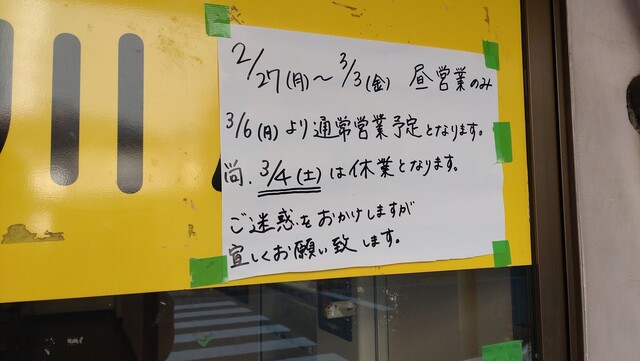 2/27(月)〜3/3(金) 昼営業のみ
3/6(月)より通常営業予定となります。
尚、3/4(土)は休業となります。
ご迷惑をおかけしますが
宜しくお願い致します。